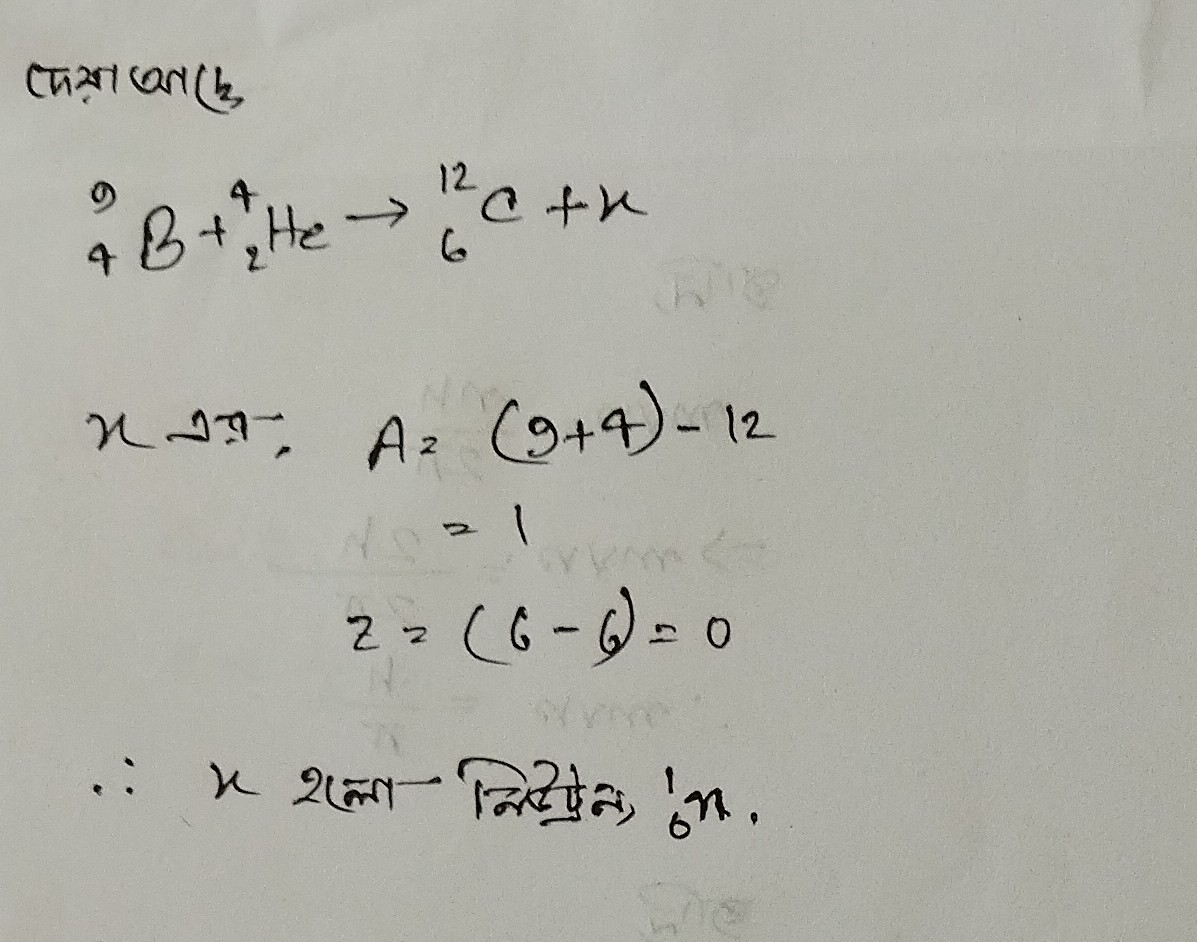 দেয়া আছে
⁹₄B + ⁴₂He → ¹²₆C + x
x এর, A = (9+4) - 12
= 1
Z = (6-6) = 0
∴ x হলো নিউট্রন, ¹₀n.